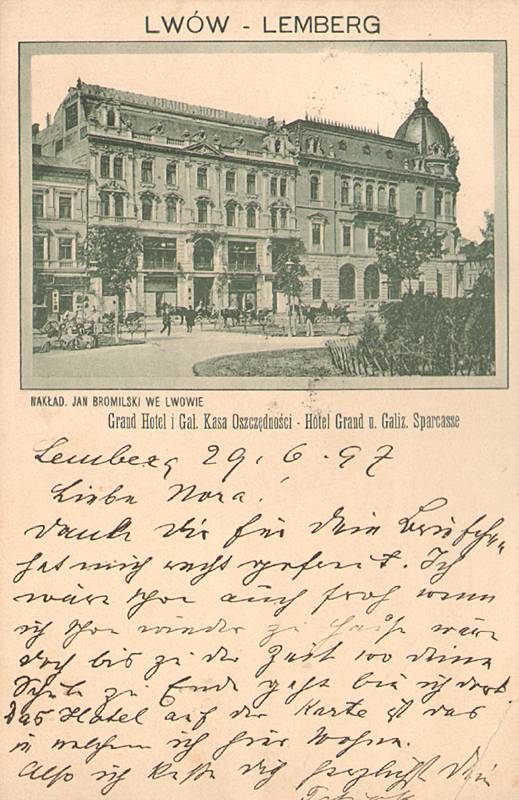 LWÓW - LEMBERG
GRAND HOTEL
NAKŁAD. JAN BROMILSKI WE LWOWIE
Grand Hotel i Gal. Kasa Oszczędności - Hôtel Grand u. Galiz. Sparcasse
Lemberg 29. 6. 97
Liebe Nora!
danke dir für dein
hat mich recht gefreut. Ich
wäre schon auch froh wenn
ich schon wieder zu Hause wäre
doch bis zu der Zeit wo deine
Schule zu Ende geht bin ich dort.
Das Hotel auf der Karte ist das
in welchem ich hier wohne.
Also ich küsse dich herzlichst dein